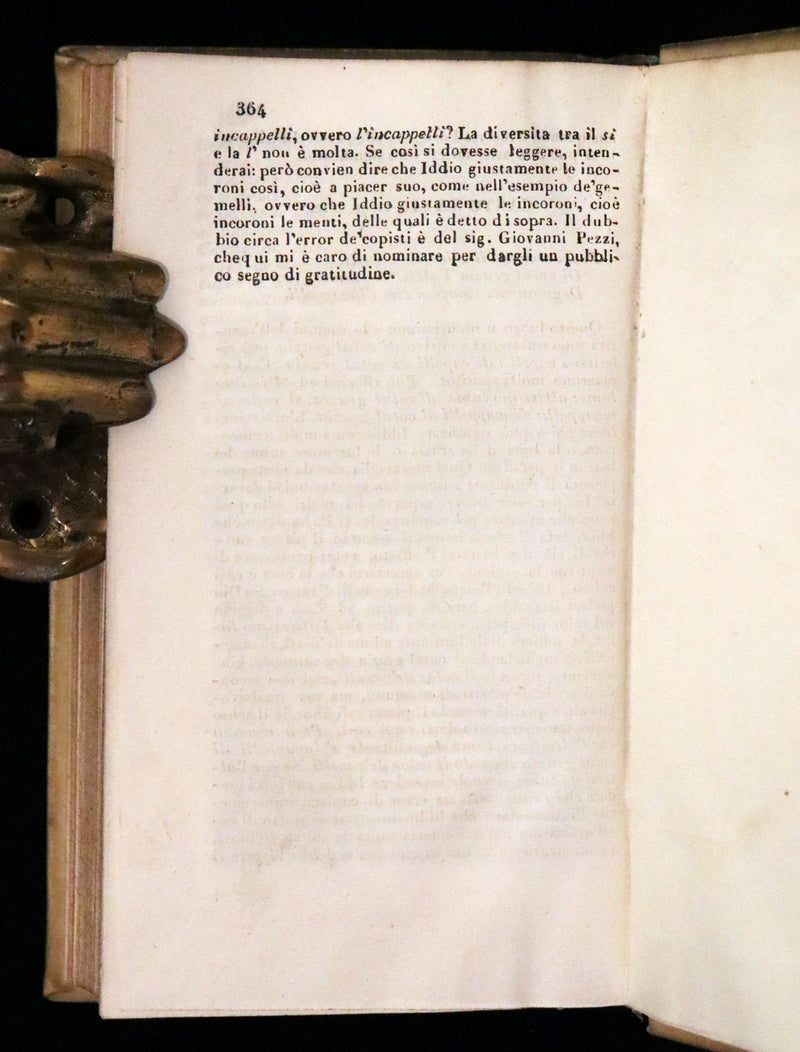 364
incappelli, ovvero l'incappelli? La diversita tra il si
e la l' non è molta. Se così si dovesse leggere, inten-
derai: però convien dire che Iddio giustamente le inco-
roni così, cioè a piacer suo, come nell'esempio de'ge-
melli, ovvero che Iddio giustamente le incoroni, cioè
incoroni le menti, delle quali è detto di sopra. Il dub-
bio circa l'error de'copisti è del sig. Giovanni Pezzi,
cheq ui mi è caro di nominare per dargli un pubbli-
co segno di gratitudine.